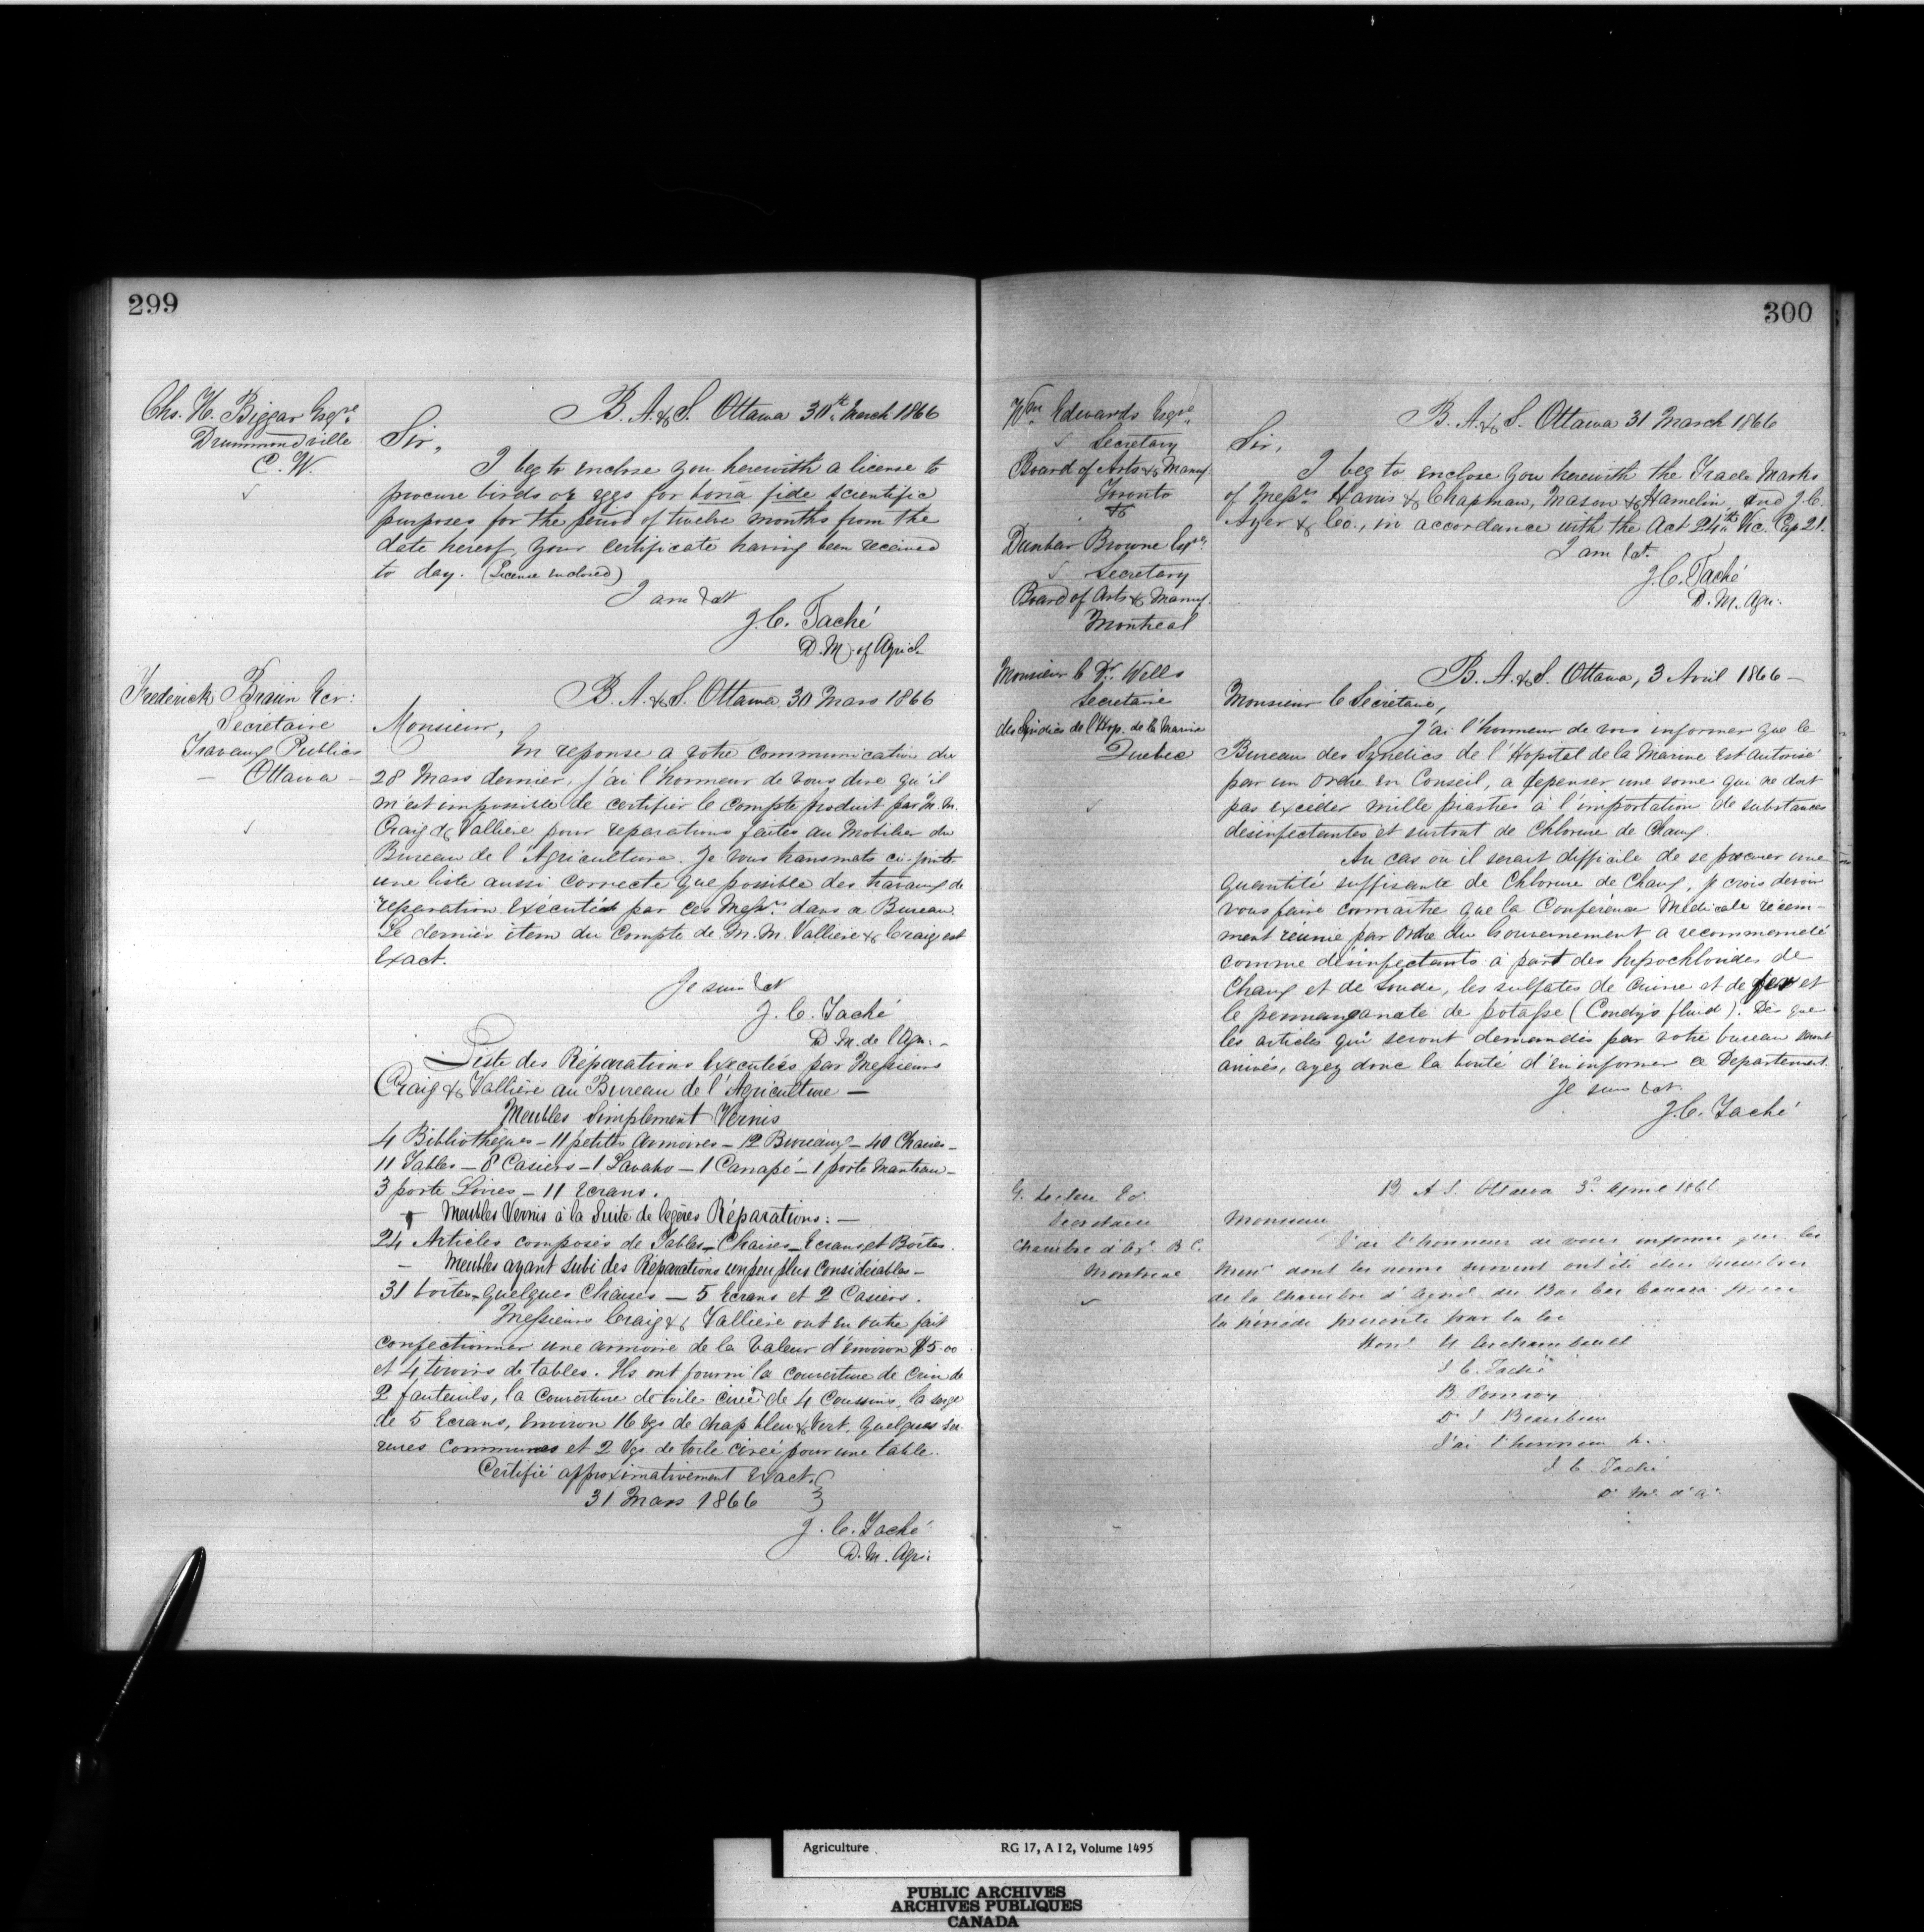 299
Chs. H. Biggar Esqre
Drummondville
C. W.
B. A. & S. Ottawa 30th March 1866
Sir,
I beg to enclose you herewith a license to
procure birds or eggs for bona fide scientific
purposes for the period of twelve months from the
date hereof, your certificate having been received
to day. (License enclosed)
I am &ct
J. C. Taché
D. M. of Agricl.
Frederick Braün Ecr:
Secrétaire
Travaux Publics
— Ottawa —
B. A. & S. Ottawa 30 Mars 1866
Monsieur,
En reponse a votre communication du
28 Mars dernier, j'ai l'honneur de vous dire qu'il
m'est impossible de certifier le compte produit par M. M.
Craig & Vallière pour reparations faites au Mobilier du
Bureau de l'Agriculture. Je vous transmets ci-jointe
une liste aussi correcte que possible des travaux de
reparation exécutés par ces Messrs dans ce Bureau.
Le dernier item du Compte de M. M. Vallière & Craig est
Exact.
Je suis &ct
J. C. Taché
D. M. de l'Agri. -
Liste des Réparations Executées par Messieurs
Craig & Vallière au Bureau de l'Agriculture —
Meubles Simplement Vernis
4 Bibliothèques — 11 petites Armoires — 12 Bureaux — 40 Chaises —
11 Tables — 8 Casiers — 1 Lavabo — 1 Canapé — 1 porte Manteau —
3 porte Livres — 11 Ecrans.
Meubles Vernis à la Suite de légères Réparations: —
24 Articles composés de Tables — Chaises — Ecrans et Boîtes.
— Meubles ayant Subi des Réparations un peu plus Considérables —
31 boîtes — quelques Chaises — 5 Ecrans et 2 Casiers.
Messieurs Craig & Vallière ont en outre fait
confectionner une armoire de la Valeur d'environ $5.00
et 4 tiroirs de tables. Ils ont fourni la couverture de Crin de
2 fauteuils, la couverture de toile cirée de 4 Coussins, la serge
de 5 Ecrans, Environ 16 vgs de drap bleu & Vert, quelques ser-
rures Communes et 2 Vgs. de toile cirée pour une table.
Certifié approximativement Exact.
31 Mars 1866
J. C. Taché
D. M. Agri:
300
Wm Edwards Esqre
Secretary
Board of Arts & Manuf.
Toronto
&
Dunbar Browne Esqre
Secretary
Board of Arts & Manuf.
Montreal
B. A. & S. Ottawa 31 March 1866
Sir,
I beg to enclose you herewith the Trade Marks
of Messrs Harris & Chapman, Mason & Hamelin, and J. C.
Ayer & Co., in accordance with the Act 24th Vic. Cap 21.
I am &ct.
J. C. Taché
D. M. Agri.
Monsieur le Dr. Wells
Secrétaire
des Syndics de l'Hop. de la Marine
Quebec
B. A. & S. Ottawa, 3 Avril 1866 —
Monsieur le Secrétaire,
J'ai l'honneur de vous informer que le
Bureau des Syndics de l'Hopital de la Marine est autorisé
par un Ordre en Conseil, a depenser une some qui ne doit
pas excéder mille piastres à l'importation de substances
désinfectantes et surtout de Chlorure de Chaux.
Au cas où il serait difficile de se procurer une
quantité suffisante de Chlorure de Chaux, je crois devoir
vous faire connaitre que la Conférence Médicale récem-
ment réunie par Ordre du Gouvernement a recommendé
comme désinfectants à part des hypochlorides de
Chaux et de Soude, les sulfates de Cuivre et de fer et
le permanganate de potasse (Condy's fluid). Dès que
les articles qui seront demandés par votre bureau seront
arrivés, ayez donc la bonté d'en informer ce Departement.
Je suis &ct.
J. C. Taché
G. Leclere Ec.
Secretaire
Chambre d'Agr. B. C.
Montreal
B. A. S. Ottawa 3d April 1866
Monsieur
J'ai l'honneur de vous informer que les
Mess. dont les noms suivent ont été élus Membres
de la Chambre d'Agricl. du Bas Canada pour
la période prescrite par la loi
Honl. U Archambault
J. C. Taché
B. Pomroy
Dr J. Beaubien
J'ai l'honneur &.
J. C. Taché
D. M. d'A.
Agriculture RG 17, A I 2, Volume 1495
PUBLIC ARCHIVES
ARCHIVES PUBLIQUES
CANADA